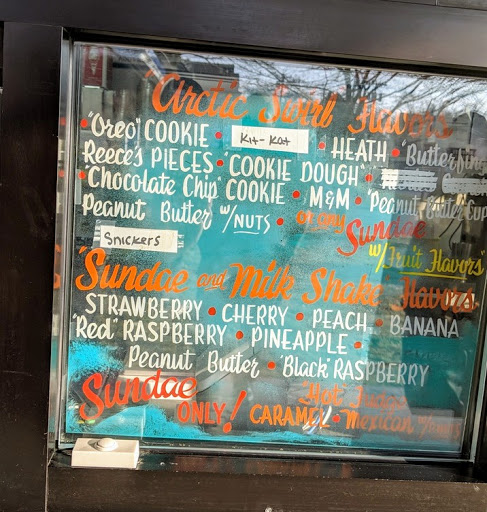 "Arctic Swirl" Flavors
"Oreo" COOKIE • Kit-Kat • HEATH • "Butterfing
Reece's PIECES • "COOKIE DOUGH" •
"Chocolate Chip" COOKIE • M&M • "Peanut Butter Cup
Peanut Butter w/NUTS • or any Sundae
Snickers w/"Fruit Flavors"
"Sundae and Milk Shake Flavors
STRAWBERRY • CHERRY • PEACH • BANANA
"Red" RASPBERRY • PINEAPPLE •
Peanut Butter • "Black" RASPBERRY
Sundae "Hot" Fudge
ONLY! CARAMEL • Mexican